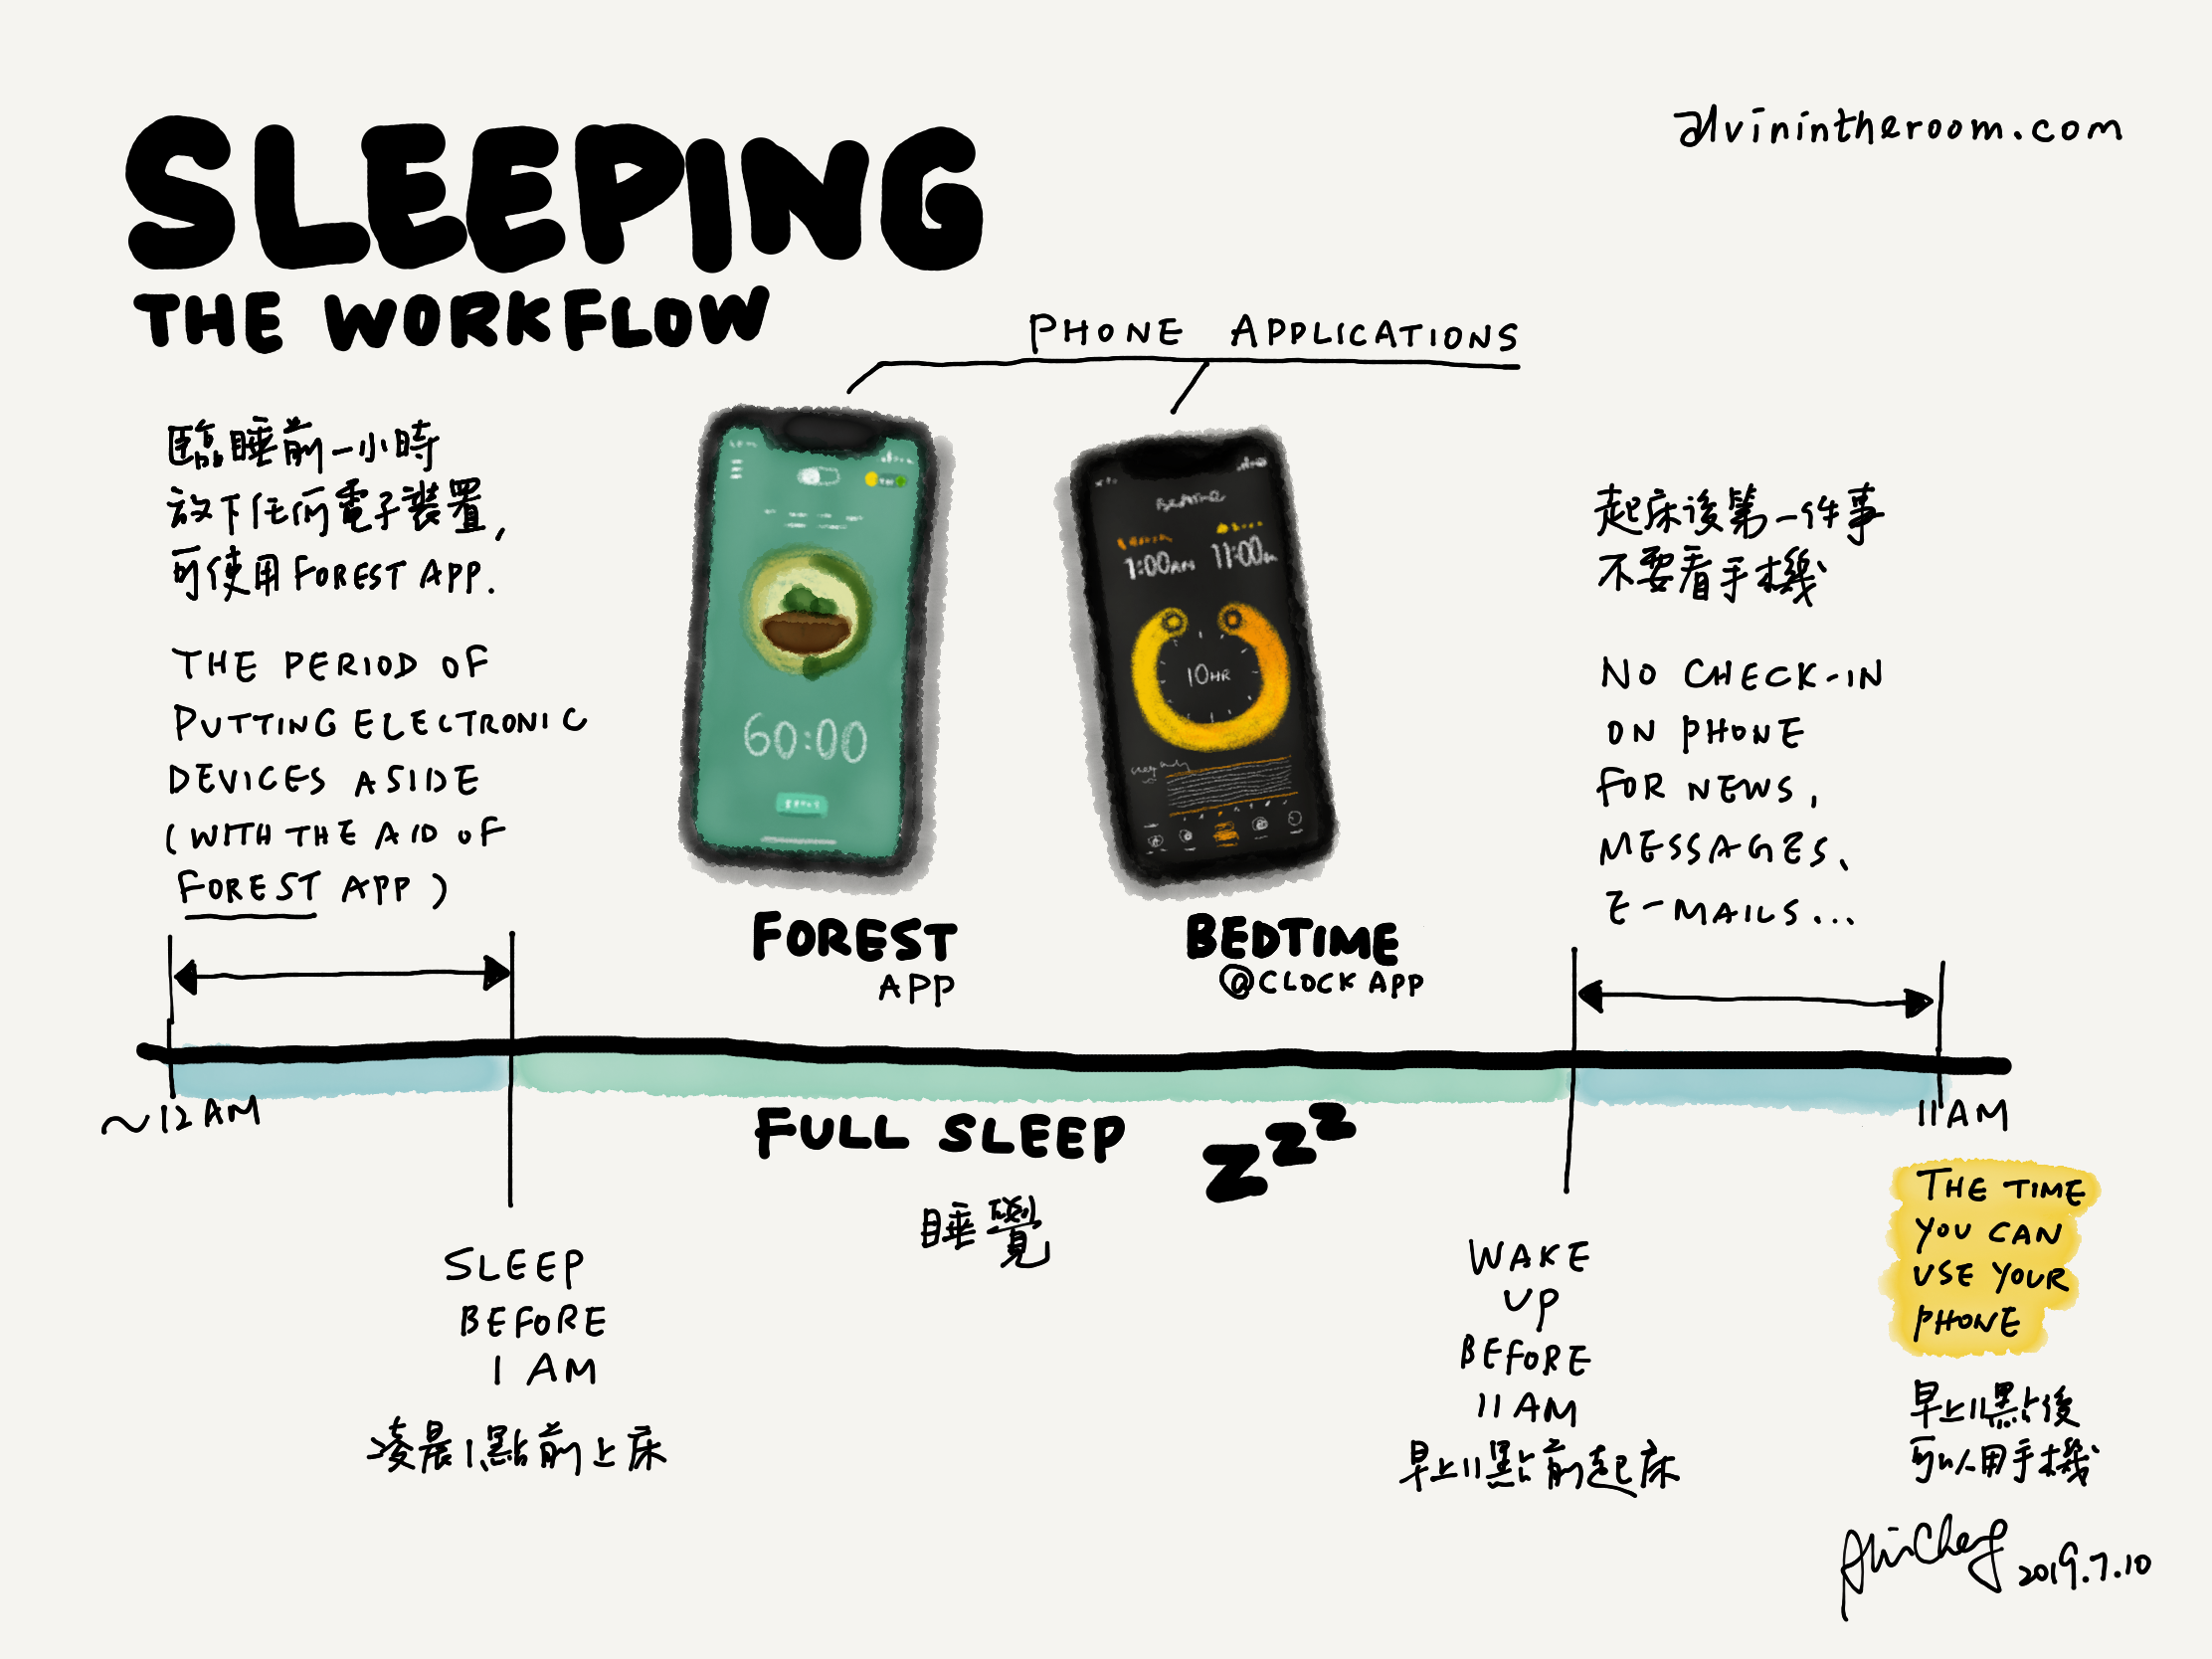 SLEEPING
THE WORKFLOW
alvinintheroom.com
PHONE APPLICATIONS
臨睡前一小時
放下任何電子裝置,
可使用 FOREST APP.
THE PERIOD OF
PUTTING ELECTRONIC
DEVICES ASIDE
(WITH THE AID OF
FOREST APP)
60:00
FOREST
APP
BEDTIME
1:00AM 11:00AM
10HR
BEDTIME
@CLOCK APP
起床後第一件事
不要看手機
NO CHECK-IN
ON PHONE
FOR NEWS,
MESSAGES,
E-MAILS...
~12AM
11AM
FULL SLEEP zzz
睡覺
SLEEP
BEFORE
1 AM
凌晨1點前上床
WAKE
UP
BEFORE
11AM
早上11點前起床
THE TIME
YOU CAN
USE YOUR
PHONE
早上11點後
可以用手機
2019.7.10